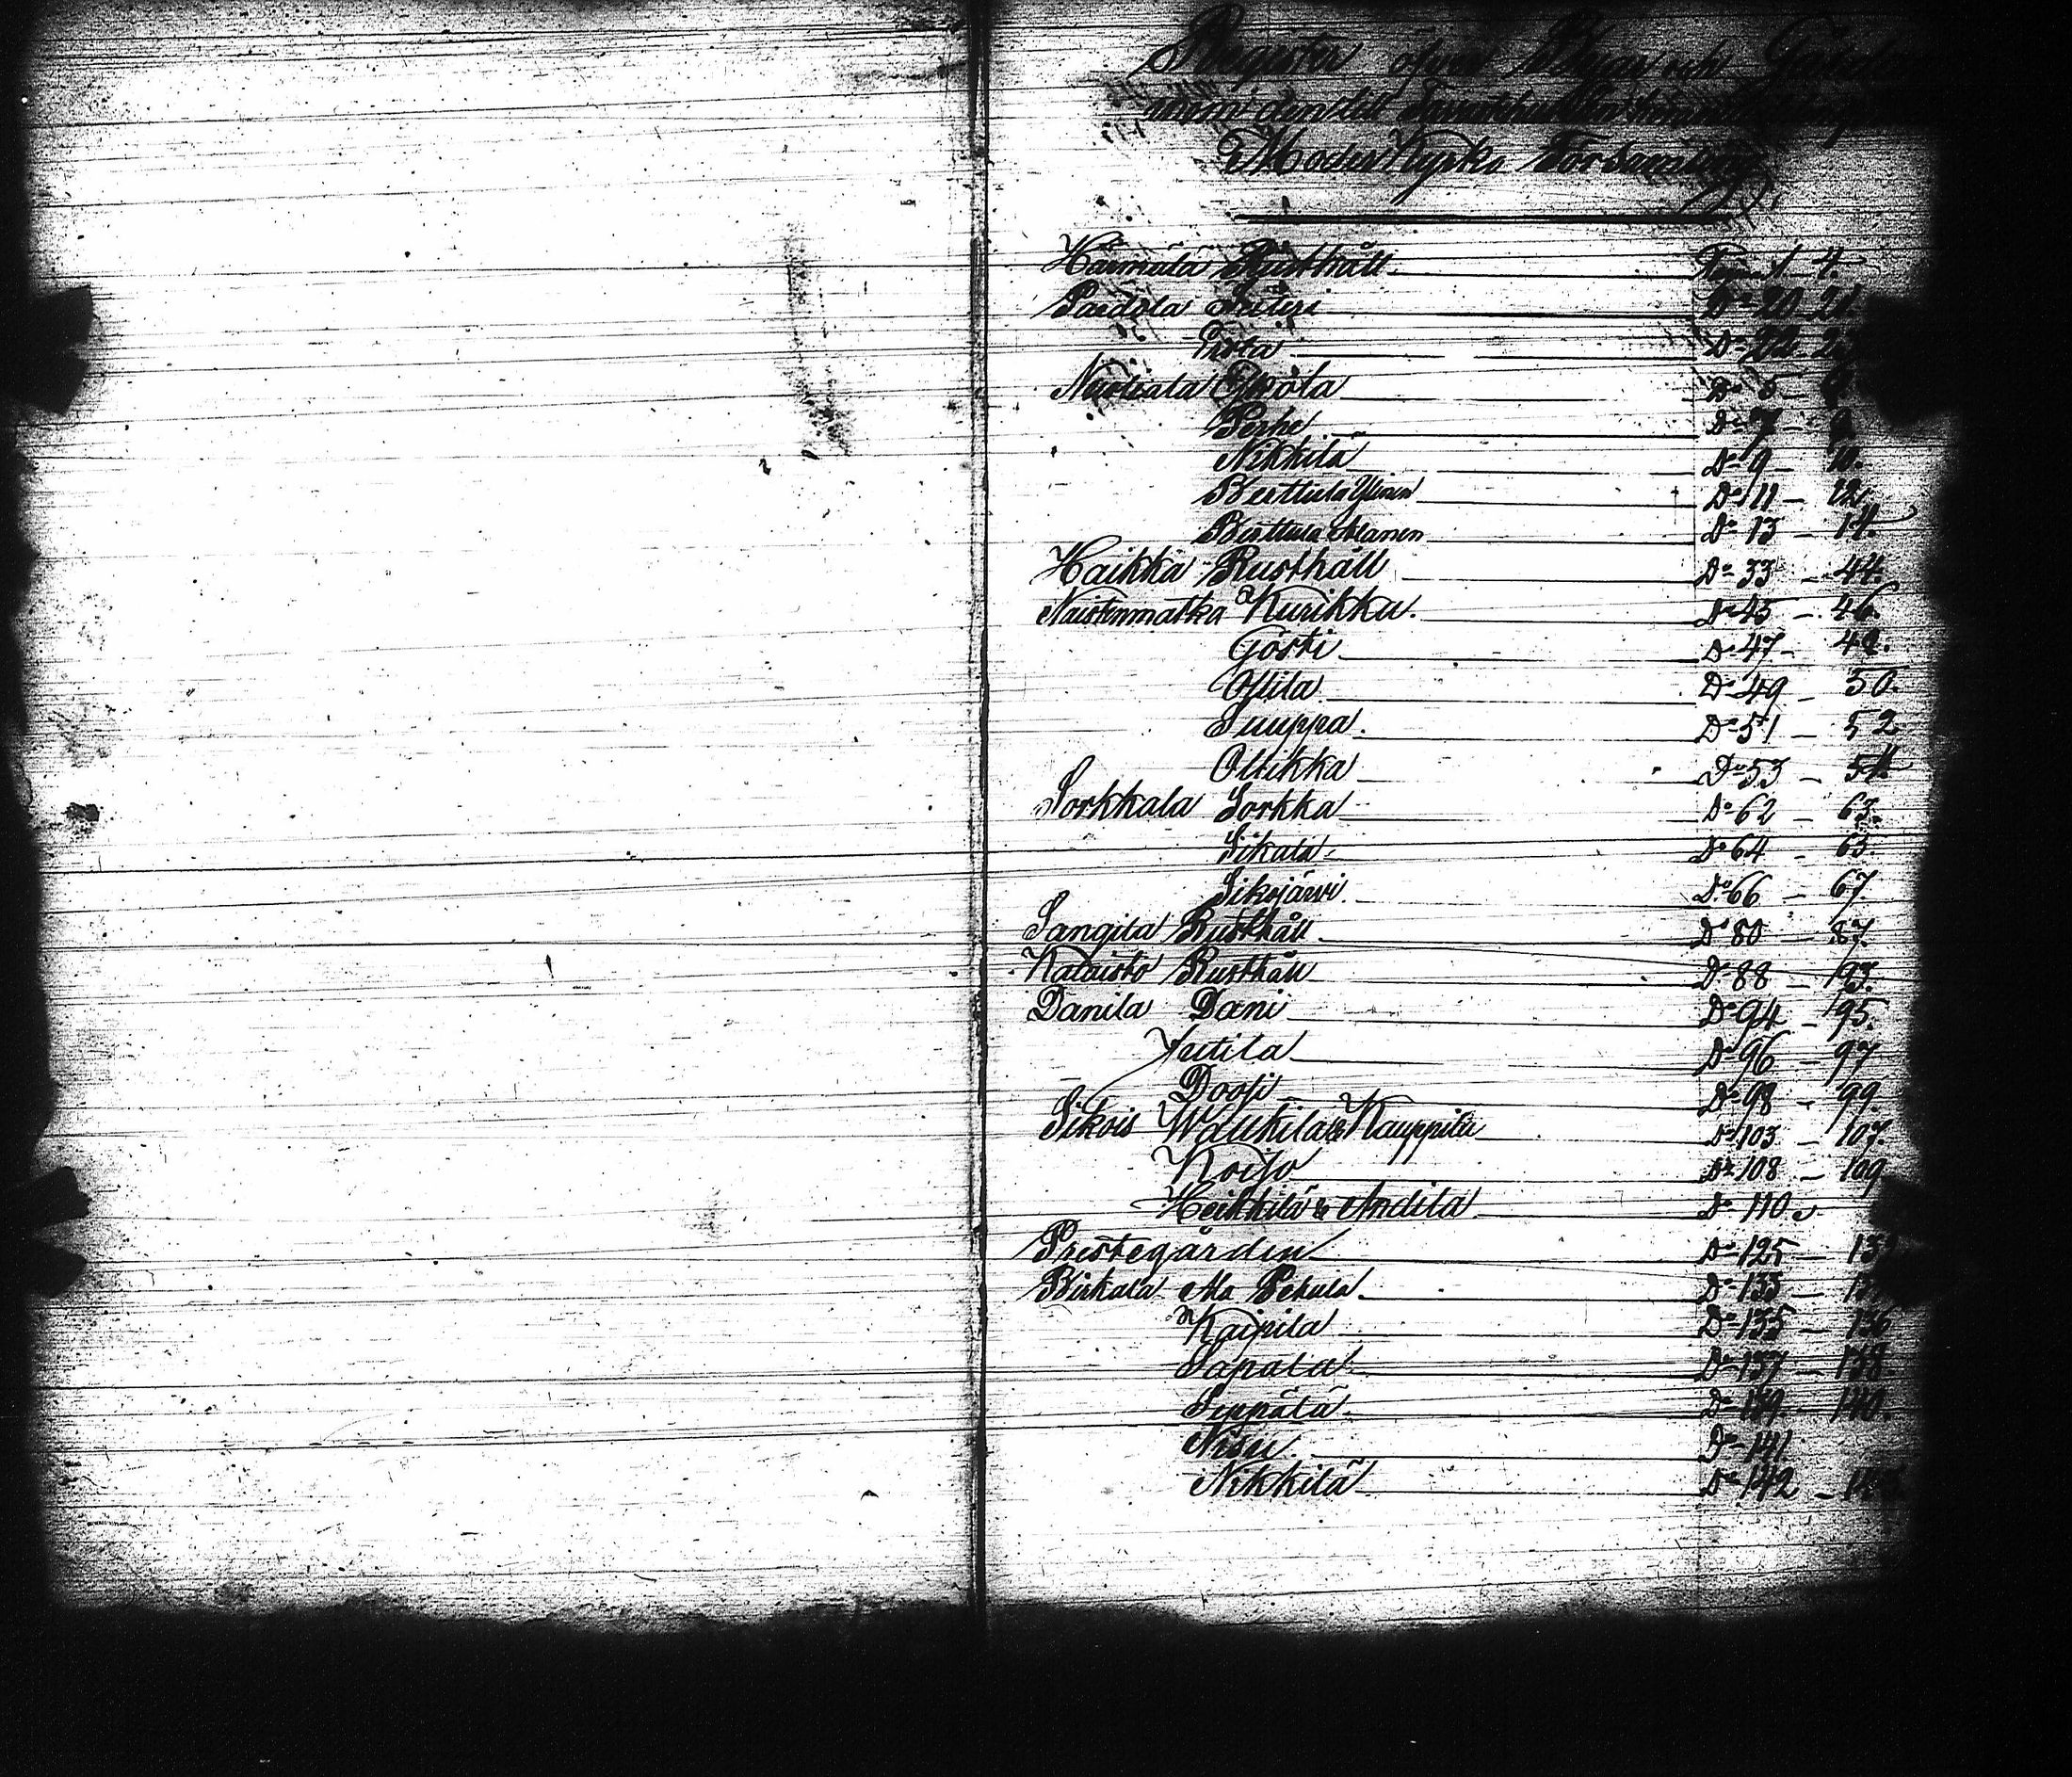 Register öfver Byar och
Moder Kyrko Församling
Rusthåll Pagina 1 4.
Partola Säteri Do 20 21.
Do 22
Nuoliala Do 5
Perhe Do 7
Nikkilä Do 9 – 10.
Berttula Ylinen Do 11 – 12
Berttula Alanen Do 13 – 14.
Haikka Rusthåll Do 33 – 44.
Naistenmatka Kurikku. Do 45 – 46.
Gösti Do 47 – 48.
Ollila Do 49 – 50.
Simppa. Do 51 – 52
Ollikka Do 53 – 54
Sorkkala Sorkka Do 62 – 63.
Sikala Do 64 – 65.
Sikojärvi Do 66 – 67.
Sangila Rusthåll Do 80 – 87.
Kalaisto Rusthåll Do 88 – 93.
Danila Dani Do 94 – 95.
Do 96 – 97
Do 98 – 99.
Sikois Kauppila Do 103 – 107.
Koijo Do 108 – 109
Heikkilä & Andila Do 110
Prestegården Do 125
Birkala Ala Pekula Do 133
Kaipila Do 135 – 136
Sapala Do 137 – 138
Seppälä Do 139 140.
Nisu Do 141
Nikkilä Do 142